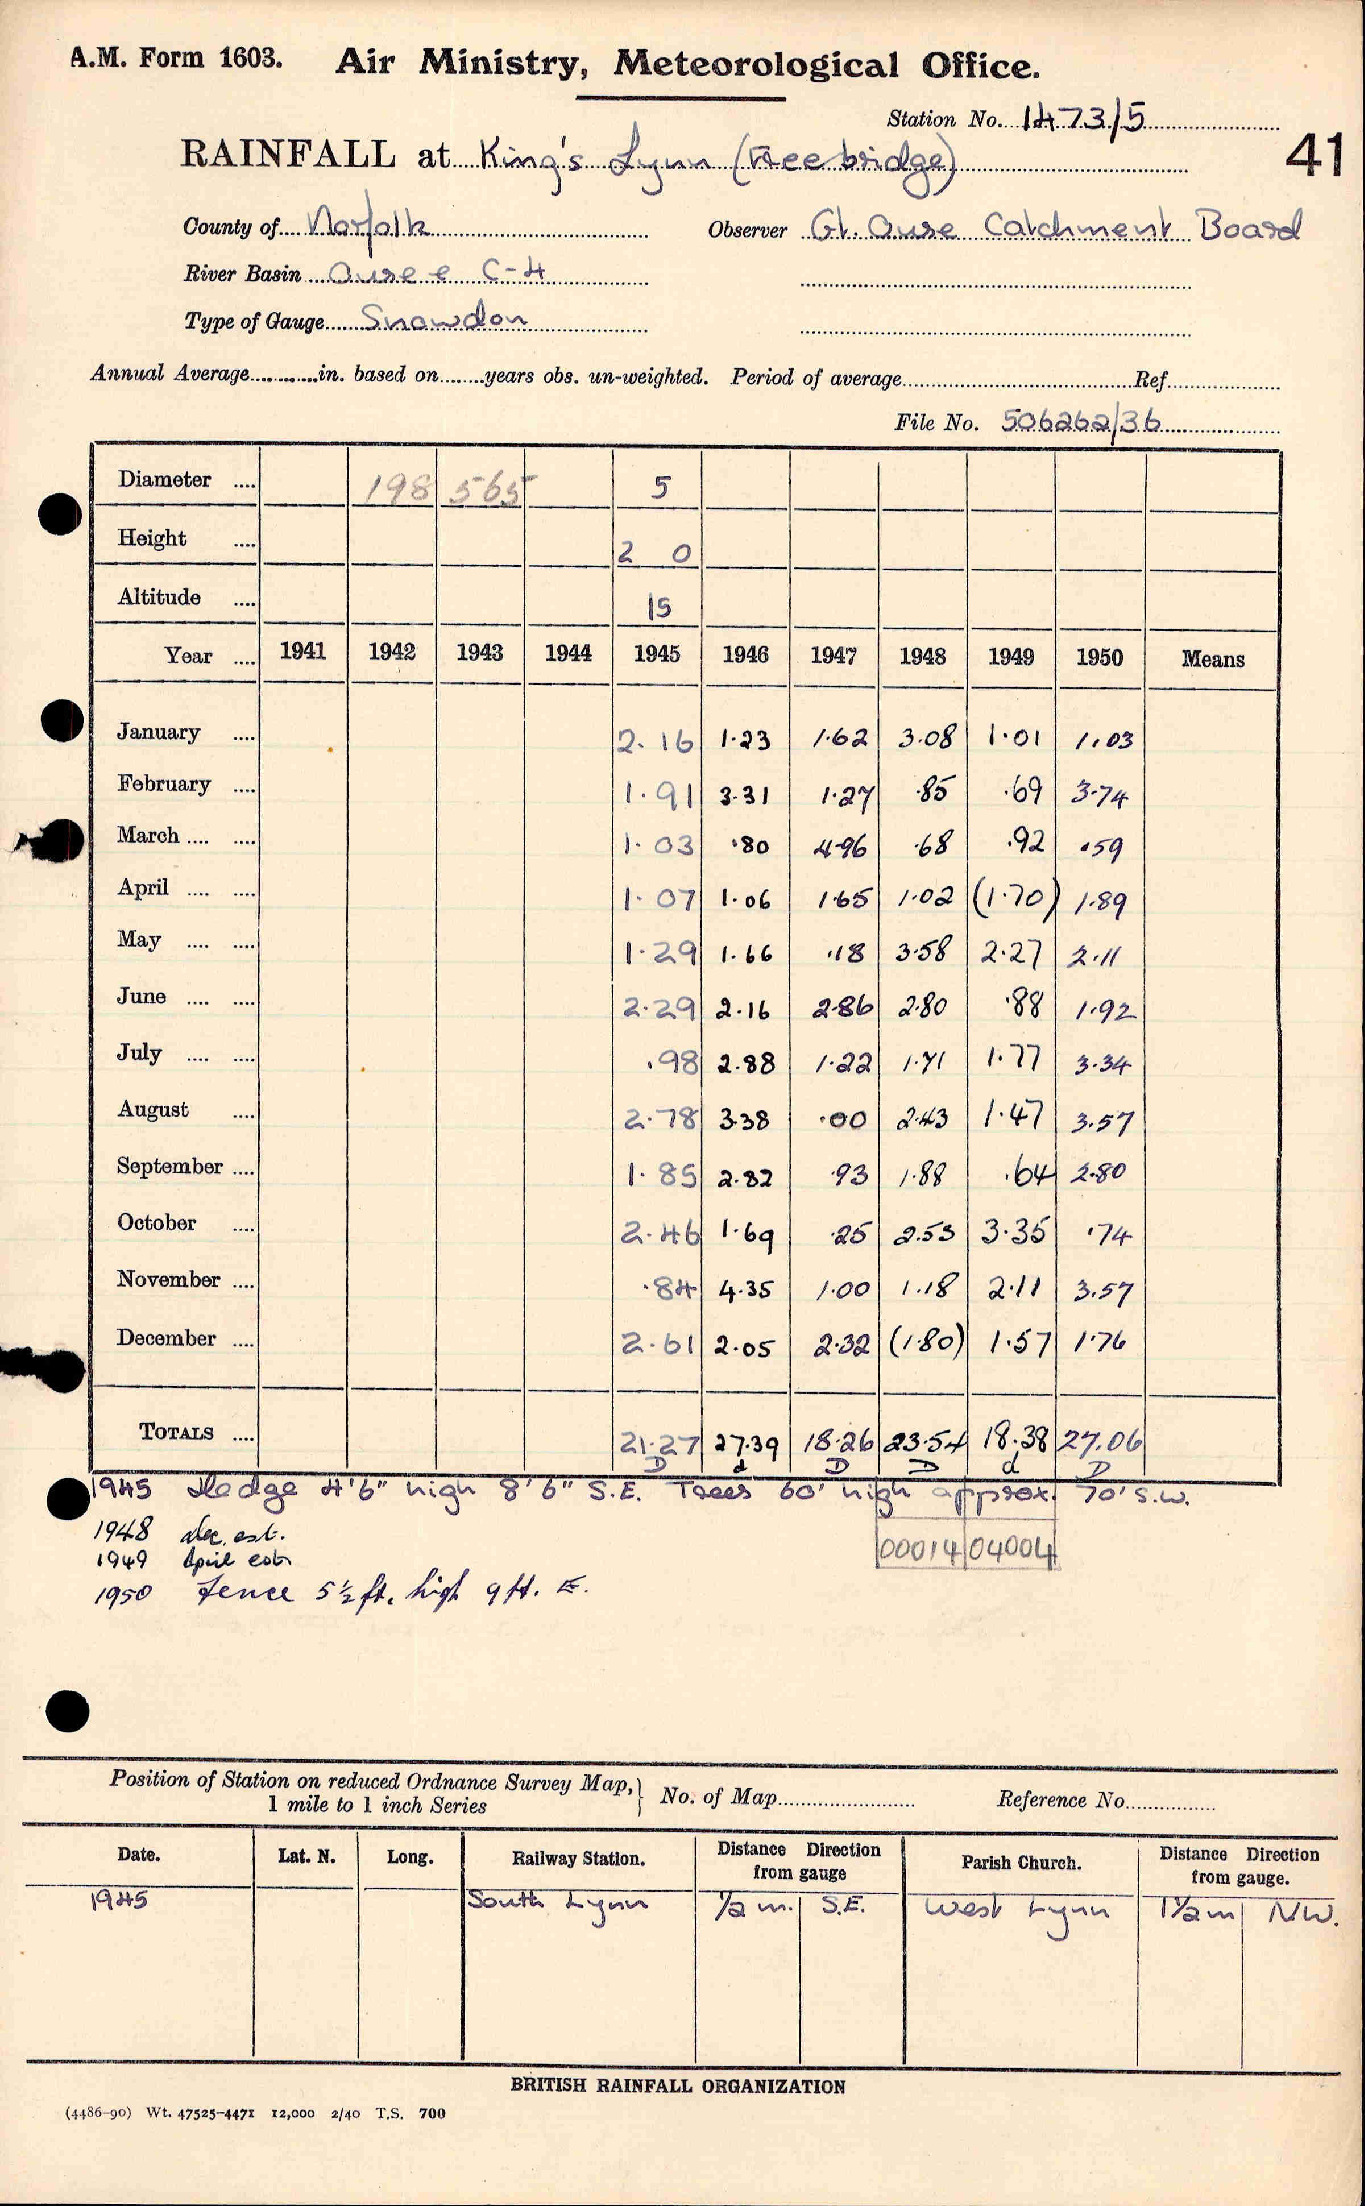 A.M. Form 1603. Air Ministry, Meteorological Office.
Station No. 1473/5
RAINFALL at King's Lynn (Freebridge) 41
County of Norfolk Observer Gt. Ouse Catchment Board
River Basin Ouse e C-4
Type of Gauge Snowdon
Annual Average............in. based on........years obs. un-weighted. Period of average.................... Ref..........
File No. 506262/36
Diameter .... 198 565 5
Height .... 2 0
Altitude .... 15
Year .... 1941 1942 1943 1944 1945 1946 1947 1948 1949 1950 Means
January .... 2.16 1.23 1.62 3.08 1.01 1.03
February .... 1.91 3.31 1.27 .85 .69 3.74
March .... .... 1.03 .80 4.96 .68 .92 .59
April .... .... 1.07 1.06 1.65 1.02 (1.70) 1.89
May .... .... 1.29 1.66 .18 3.58 2.27 2.11
June .... .... 2.29 2.16 2.86 2.80 .88 1.92
July .... .... .98 2.88 1.22 1.71 1.77 3.34
August .... 2.78 3.38 .00 2.43 1.47 3.57
September .... 1.85 2.82 .93 1.88 .64 2.80
October .... 2.46 1.69 .25 2.53 3.35 .74
November .... .84 4.35 1.00 1.18 2.11 3.57
December .... 2.61 2.05 2.32 (1.80) 1.57 1.76
TOTALS .... 21.27 27.39 18.26 23.54 18.38 27.06
D d D D d D
1945 Hedge 4'6" high 8'6" S.E. Trees 60' high approx. 70' S.W.
1948 Dec. est.
1949 April est.
00014 04004
1950 Fence 5½ ft. high 9 ft. E.
Position of Station on reduced Ordnance Survey Map,} No. of Map.................... Reference No................
1 mile to 1 inch Series
Date. Lat. N. Long. Railway Station. Distance Direction from gauge Parish Church. Distance Direction from gauge.
1945 South Lynn 1/2 m. S.E. West Lynn 1 1/2 m NW.
BRITISH RAINFALL ORGANIZATION
(4486-90) Wt. 47525-4471 12,000 2/40 T.S. 700